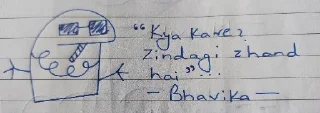 "Kya Kare?
zindagi zhand
hai"...
- Bhavika -